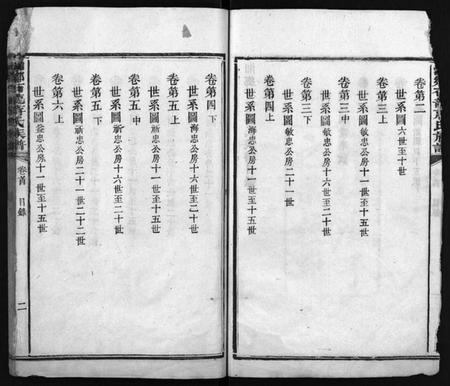 卷第二
世系圖六世至十世
卷第三上
世系圖敏忠公房十一世至十五世
卷第三中
世系圖敏忠公房十六世至二十世
卷第三下
世系圖敏忠公房二十一世至二十二世
卷第四上
世系圖海忠公房十一世至十五世
卷第四下
世系圖海忠公房十六世至二十世
卷第五上
世系圖祈忠公房十一世至十五世
卷第五中
世系圖祈忠公房十六世至二十世
卷第五下
世系圖祈忠公房二十一世二十二世
卷第六上
世系圖益忠公房十一世至十五世
氏族譜
卷首
目錄
二